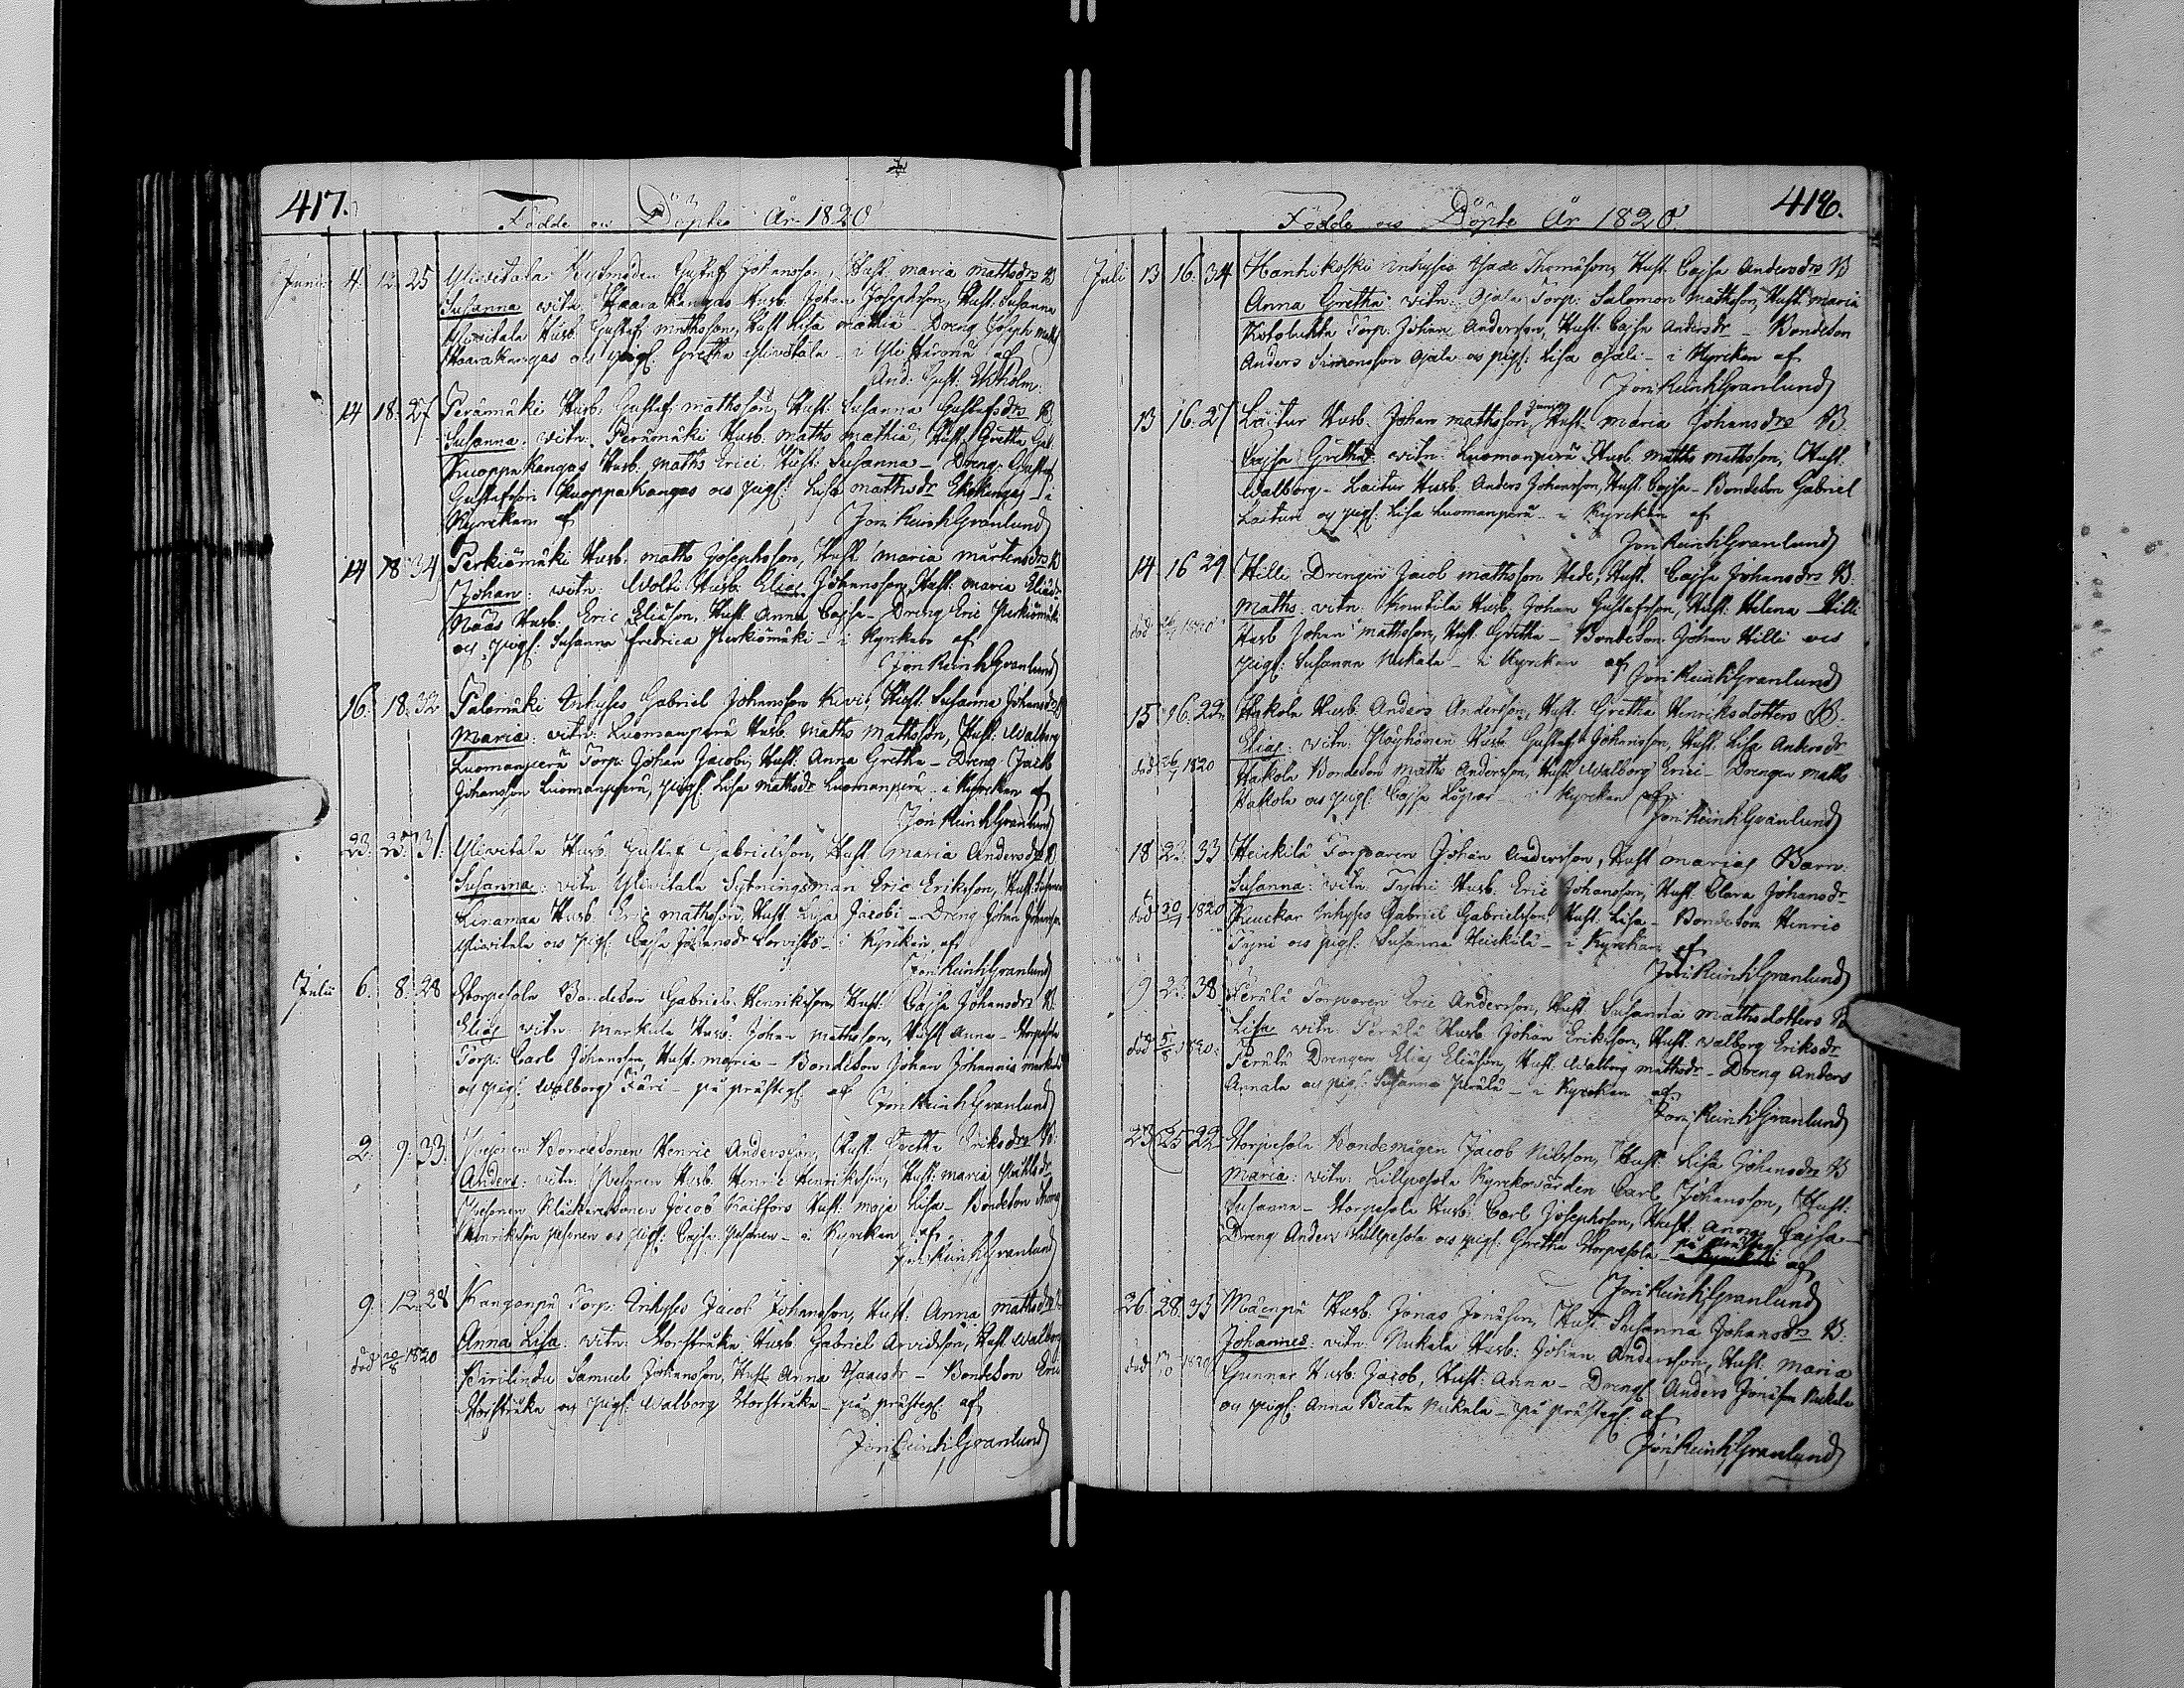 417.
Födde och Döpte År 1820
Junii 4. 12. 25 Yliviitala Gustaf Johansson, Hust. Maria Mathsdrs B
Susanna witn: Haarakangas Husb: Johan Josephsson, Hust: Susanna
Yliviitala Husb: Gustaf Mathsson, Hust. Lisa Mathiæ - Dreng Joseph Maths
Haarakangas och pigf: Gretha Yliviitala - i Yli Härmä af
And: Gust: Ekholm.
14 18. 27 Perämäki Husb: Gustaf Mathsson, Hust: Susanna Gustafsdrs B.
Susanna. witn: Perämäki Husb: Maths Mathiæ, Hust: Gretha Gab
Kuoppakangas Husb: Maths Erici Hust: Susanna - Dreng: Gustaf
Gustafsson Kuoppakangas och pigf: Lisa Mathsdr - i
Kyrckan af Jon Reinh Granlund
14 18 34 Perkiömäki Husb: Maths Josephsson, Hust Maria Mårtensdrs B
Johan: witn: Wolti Husb: Elias Johansson, Hust: Maria Eliædr
Nääs Husb: Eric Eliæson, Hust: Anna Cajsa - Dreng Eric Perkiömäki
och pigf: Susanna Fredrica Perkiömäki - i Kyrckan af
Jon Reinh Granlund
16. 18. 32 Palomäki Inhyses Gabriel Johansson Kivi, Hust: Susanna Johansdrs B
Maria: witn: Luomanperä Husb: Maths Mathsson, Hust: Walborg
Luomanperä Torp: Johan Jacobi, Hust: Anna Gretha - Dreng Jacob
Johansson Luomanperä, pigf: Lisa Mathsdr Luomanperä - i Kyrckan af
Jon Reinh Granlund
23. 25. 31. Yliviitala Husb: Gustaf Gabrielsson, Hust Maria Andersdrs B
Susanna: witn Yliviitala Sytningsman Eric Eriksson, Hust: Susanna
Linamaa Husb: Eric Mathsson, Hust: Lisa Jacobi - Dreng Johan Johansson
Yliviitala och pigf: Cajsa Johansdr Sorvisto - i Kyrckan af
Jon Reinh Granlund
Julii 6. 8. 28 Storpesola Bondeson Gabriel Henriksson, Hust: Cajsa Johansdrs B.
Elias witn Markula Husb: Johan Mathsson, Hust Anna - Storpesola
Torp: Carl Johansson, Hust: Maria - Bondeson Johan Johannis Markula
och pigf: Walborg Färi - på prästeg: af Jon Reinh Granlund
2. 9. 33. Pesonen Bondesonen Henric Andersson, Hust: Gretha Eriksdrs B.
Anders: witn: Pesonen Husb: Henric Henriksson, Hust: Maria
Pesonen Klåckaresonen Jacob Kaitfors Hust: Maja Lisa - Bondeson Thom
Henriksson Pesonen och pigf: Cajsa Pesonen - i Kyrckan af
Jon Reinh Granlund
9. 12. 28 Kanganpä Torp: Inhyses Jacob Johansson, Hust: Anna Mathsdrs
död 20/8 1820 Anna Lisa: witn: Storstråka Husb: Gabriel Arvidsson, Hust Walborg
Samuel Johansson, Hust Anna Isaacsdr - Bondeson Eric
Storstråka och pigf: Walborg Storstråka - på prästeg: af
Jon Reinh Granlund
418.
Födde och Döpte År 1820
Juli 13 16. 34 Hanhikoski Inhyses Isaac Thomasson, Hust: Cajsa Andersdrs B
Anna Gretha: witn: Ojala Torp: Salomon Mathsson, Hust: Maria
Torp: Johan Andersson, Hust: Cajsa Andersdr - Bondeson
Anders Simonsson Ojala och pigf: Lisa Ojala - i Kyrckan af
Jon Reinh Granlund
13 16. 27 Laitur Husb: Johan Mathsson Junior, Hust: Maria Johansdrs B.
Cajsa Gretha: witn: Luomanperä Husb Maths Mathsson, Hust:
Walborg - Laitur Husb: Anders Johansson, Hust: Cajsa - Bondeson Gabriel
Laituri och pigf: Lisa Luomanperä - i Kyrckan af
Jon Reinh Granlund
14 16 29 Hilli Drengen Jacob Mathsson Hede, Hust: Cajsa Johansdrs B.
Maths: witn: Knutila Husb: Johan Gustafsson, Hust: Helena - Hilli
död 26/7 1820 Husb Johan Mathsson, Hust: Gretha - Bondeson Johan Hilli och
pigf: Susanna Nickala - i Kyrckan af Jon Reinh Granlund
15 16. 22 Hakola Husb: Anders Andersson, Hust: Gretha Henriksdotters B.
Elias: witn: Pöyhönen Husb: Gustaf Johansson, Hust: Lisa Andersdr
död 26/7 1820 Hakola Bondeson Maths Andersson, Hust Walborg Erici - Drengen Maths
Hakola och pigf: Cajsa - i Kyrckan af
Jon Reinh Granlund
18 23. 33 Heickilä Torparen Johan Andersson, Hust Marias Barn
Susanna: witn. Tyni Husb: Eric Johansson, Hust: Clara Johansdr
död 30/7 1820 Inhyses Gabriel Gabrielsson, Hust: Lisa - Bondeson Henric
Tyni och pigf: Susanna Heickilä - i Kyrckan af
Jon Reinh Granlund
9 23. 38. Perälä Torparen Eric Andersson, Hust: Susanna Mathsdotters B
Lisa witn: Perälä Husb: Johan Eriksson, Hust: Walborg Eriksdr
död 5/8 1820: Perälä Drengen Elias Eliæson, Hust: Walborg Mathsdr - Dreng Anders
Annala och pigf: Susanna Perälä - i Kyrckan af
Jon Reinh Granlund
23 25 22. Storpesola Bondemågen Jacob Nilsson, Hust: Lisa Johansdrs B
Maria: witn: Lillpesola Kyrckowärden Carl Johansson, Hust:
Susanna - Storpesola Husb: Carl Josephsson, Hust: Anna Cajsa -
Dreng Anders Lillpesola och pigf: Gretha Storpesola - på prästeg: af
Jon Reinh Granlund
26. 28. 35 Mäenpä Husb: Jonas Jonæson, Hust: Susanna Johansdrs B.
Johannes: witn: Nickala Husb: Johan Andersson, Hust: Maria
död 13/10 1820 Gunnar Husb: Jacob, Hust: Anna - Dreng Anders Jonæson Nickala
och pigf: Anna Beata Nickala - på prästeg: af
Jon Reinh Granlund